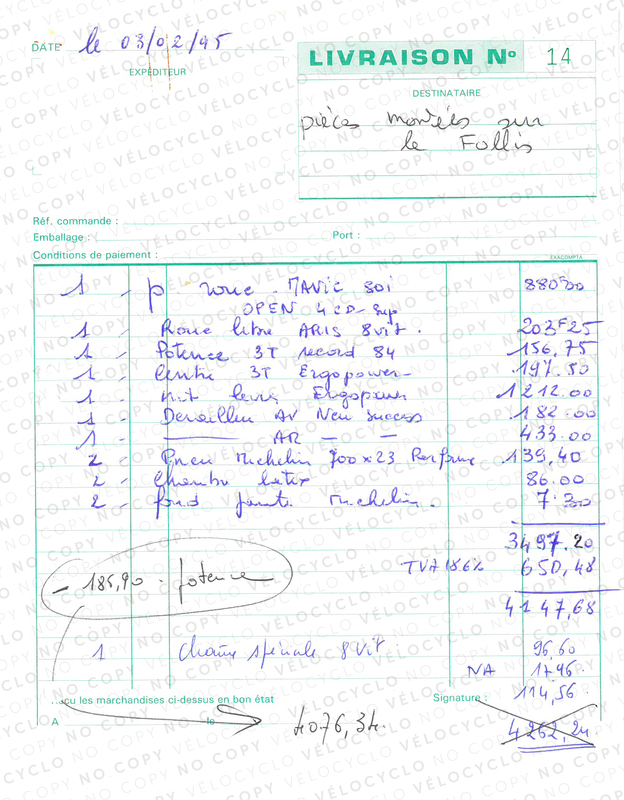 DATE le 03/02/95
EXPÉDITEUR
LIVRAISON No 14
DESTINATAIRE
pièces montées sur
le Follis
Réf. commande :
Emballage : Port :
Conditions de paiement : EXACOMPTA
1 - p roue - MAVIC 801 880F00
OPEN 4 CD - Sup
1 - Roue libre ARIS 8vit. 203F25
1 - Potence 3T record 84 156,75
1 - Centre 3T Ergopower 197.50
1 - Ergopower 1212.00
1 - Derailleur AV New success 182.00
1 - —— AR — — 433.00
2 - Pneu Michelin 700x23 139,40
2 - Chambre latex 86.00
2 - fond jante Michelin. 7.30
3497.20
TVA 18.6% 650,48
- 185,90 - potence
4147,68
1 chaine spéciale 8 Vit 96,60
17.96
...çu les marchandises ci-dessus en bon état Signature : 114,56
A le 4076,34.
4262,24
VÉLOCYCLO NO COPY